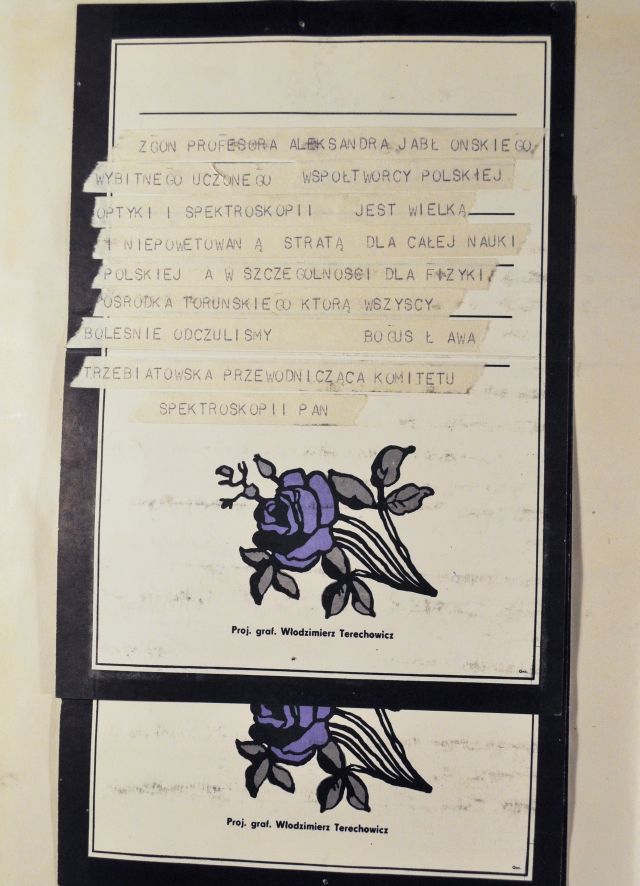 ZGON PROFESORA ALEKSANDRA JABŁ ONSKIEGO,
WYBITNEGO UCZONEGO WSPOŁTWORCY POLSKIEJ
OPTYKI I SPEKTROSKOPII JEST WIELKĄ
I NIEPOWETOWAN Ą STRATĄ DLA CAŁEJ NAUKI
POLSKIEJ A W SZCZEGOLNOSCI DLA FIZYKI
OSRODKA TORUNSKIEGO KTORĄ WSZYSCY
BOLESNIE ODCZULISMY BOGUS Ł AWA
TRZEBIATOWSKA PRZEWODNICZĄCA KOMITETU
SPEKTROSKOPII PAN
Proj. graf. Włodzimierz Terechowicz
Proj. graf. Włodzimierz Terechowicz